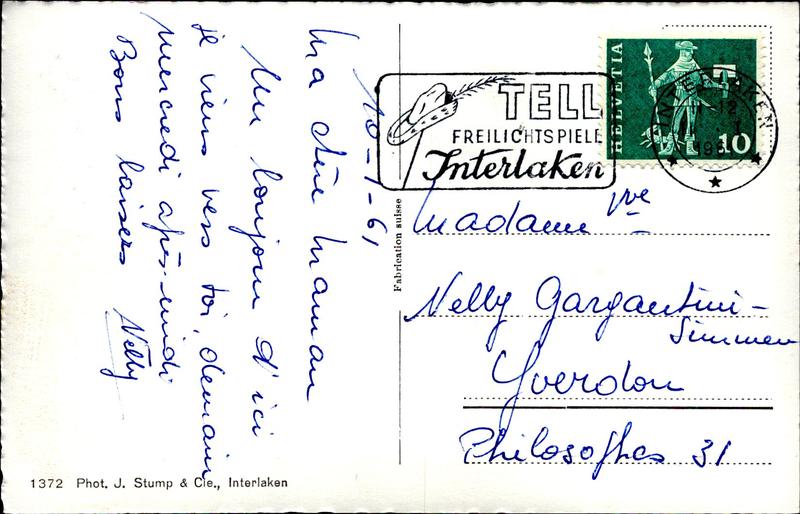 10-1-61
Ma chère Maman
Un bonjour d'ici
je viens vers toi, demain
mercredi après-midi
Bons baisers Nelly
1372 Phot. J. Stump & Cie., Interlaken
Fabrication suisse
TELL
FREILICHTSPIELE
Interlaken
HELVETIA
10
INTERLAKEN
Madame Vve
Nelly Gargantini-
Simmen
Yverdon
Philosophes 31